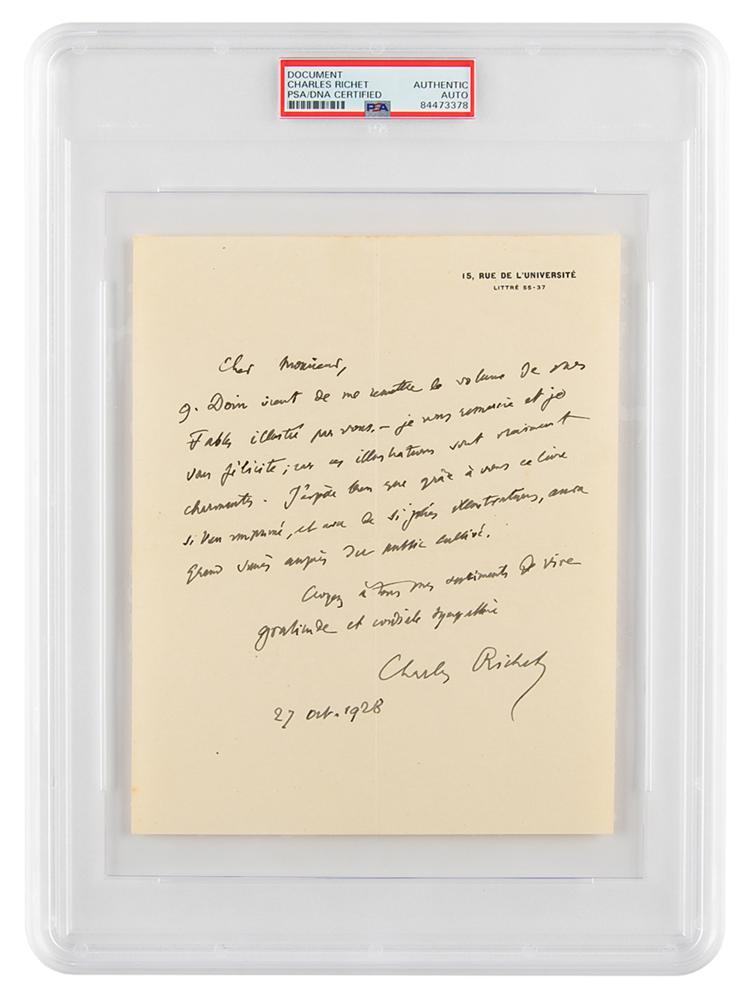 DOCUMENT
CHARLES RICHET
PSA/DNA CERTIFIED
AUTHENTIC
AUTO
84473378
PSA
15, RUE DE L'UNIVERSITÉ
LITTRÉ 55-37
Cher Monsieur,
G. Doin vient de me remettre le volume de mes
Fables illustré par vous. — je vous remercie et je
vous félicite ; car ces illustrations sont vraiment
charmantes. J'espère bien que grâce à vous ce livre
si bien imprimé, et avec de si jolies illustrations, aura
grand succès auprès du public cultivé.
Croyez à tous mes sentiments de vive
gratitude et cordiale sympathie
Charles Richet
27 oct. 1928